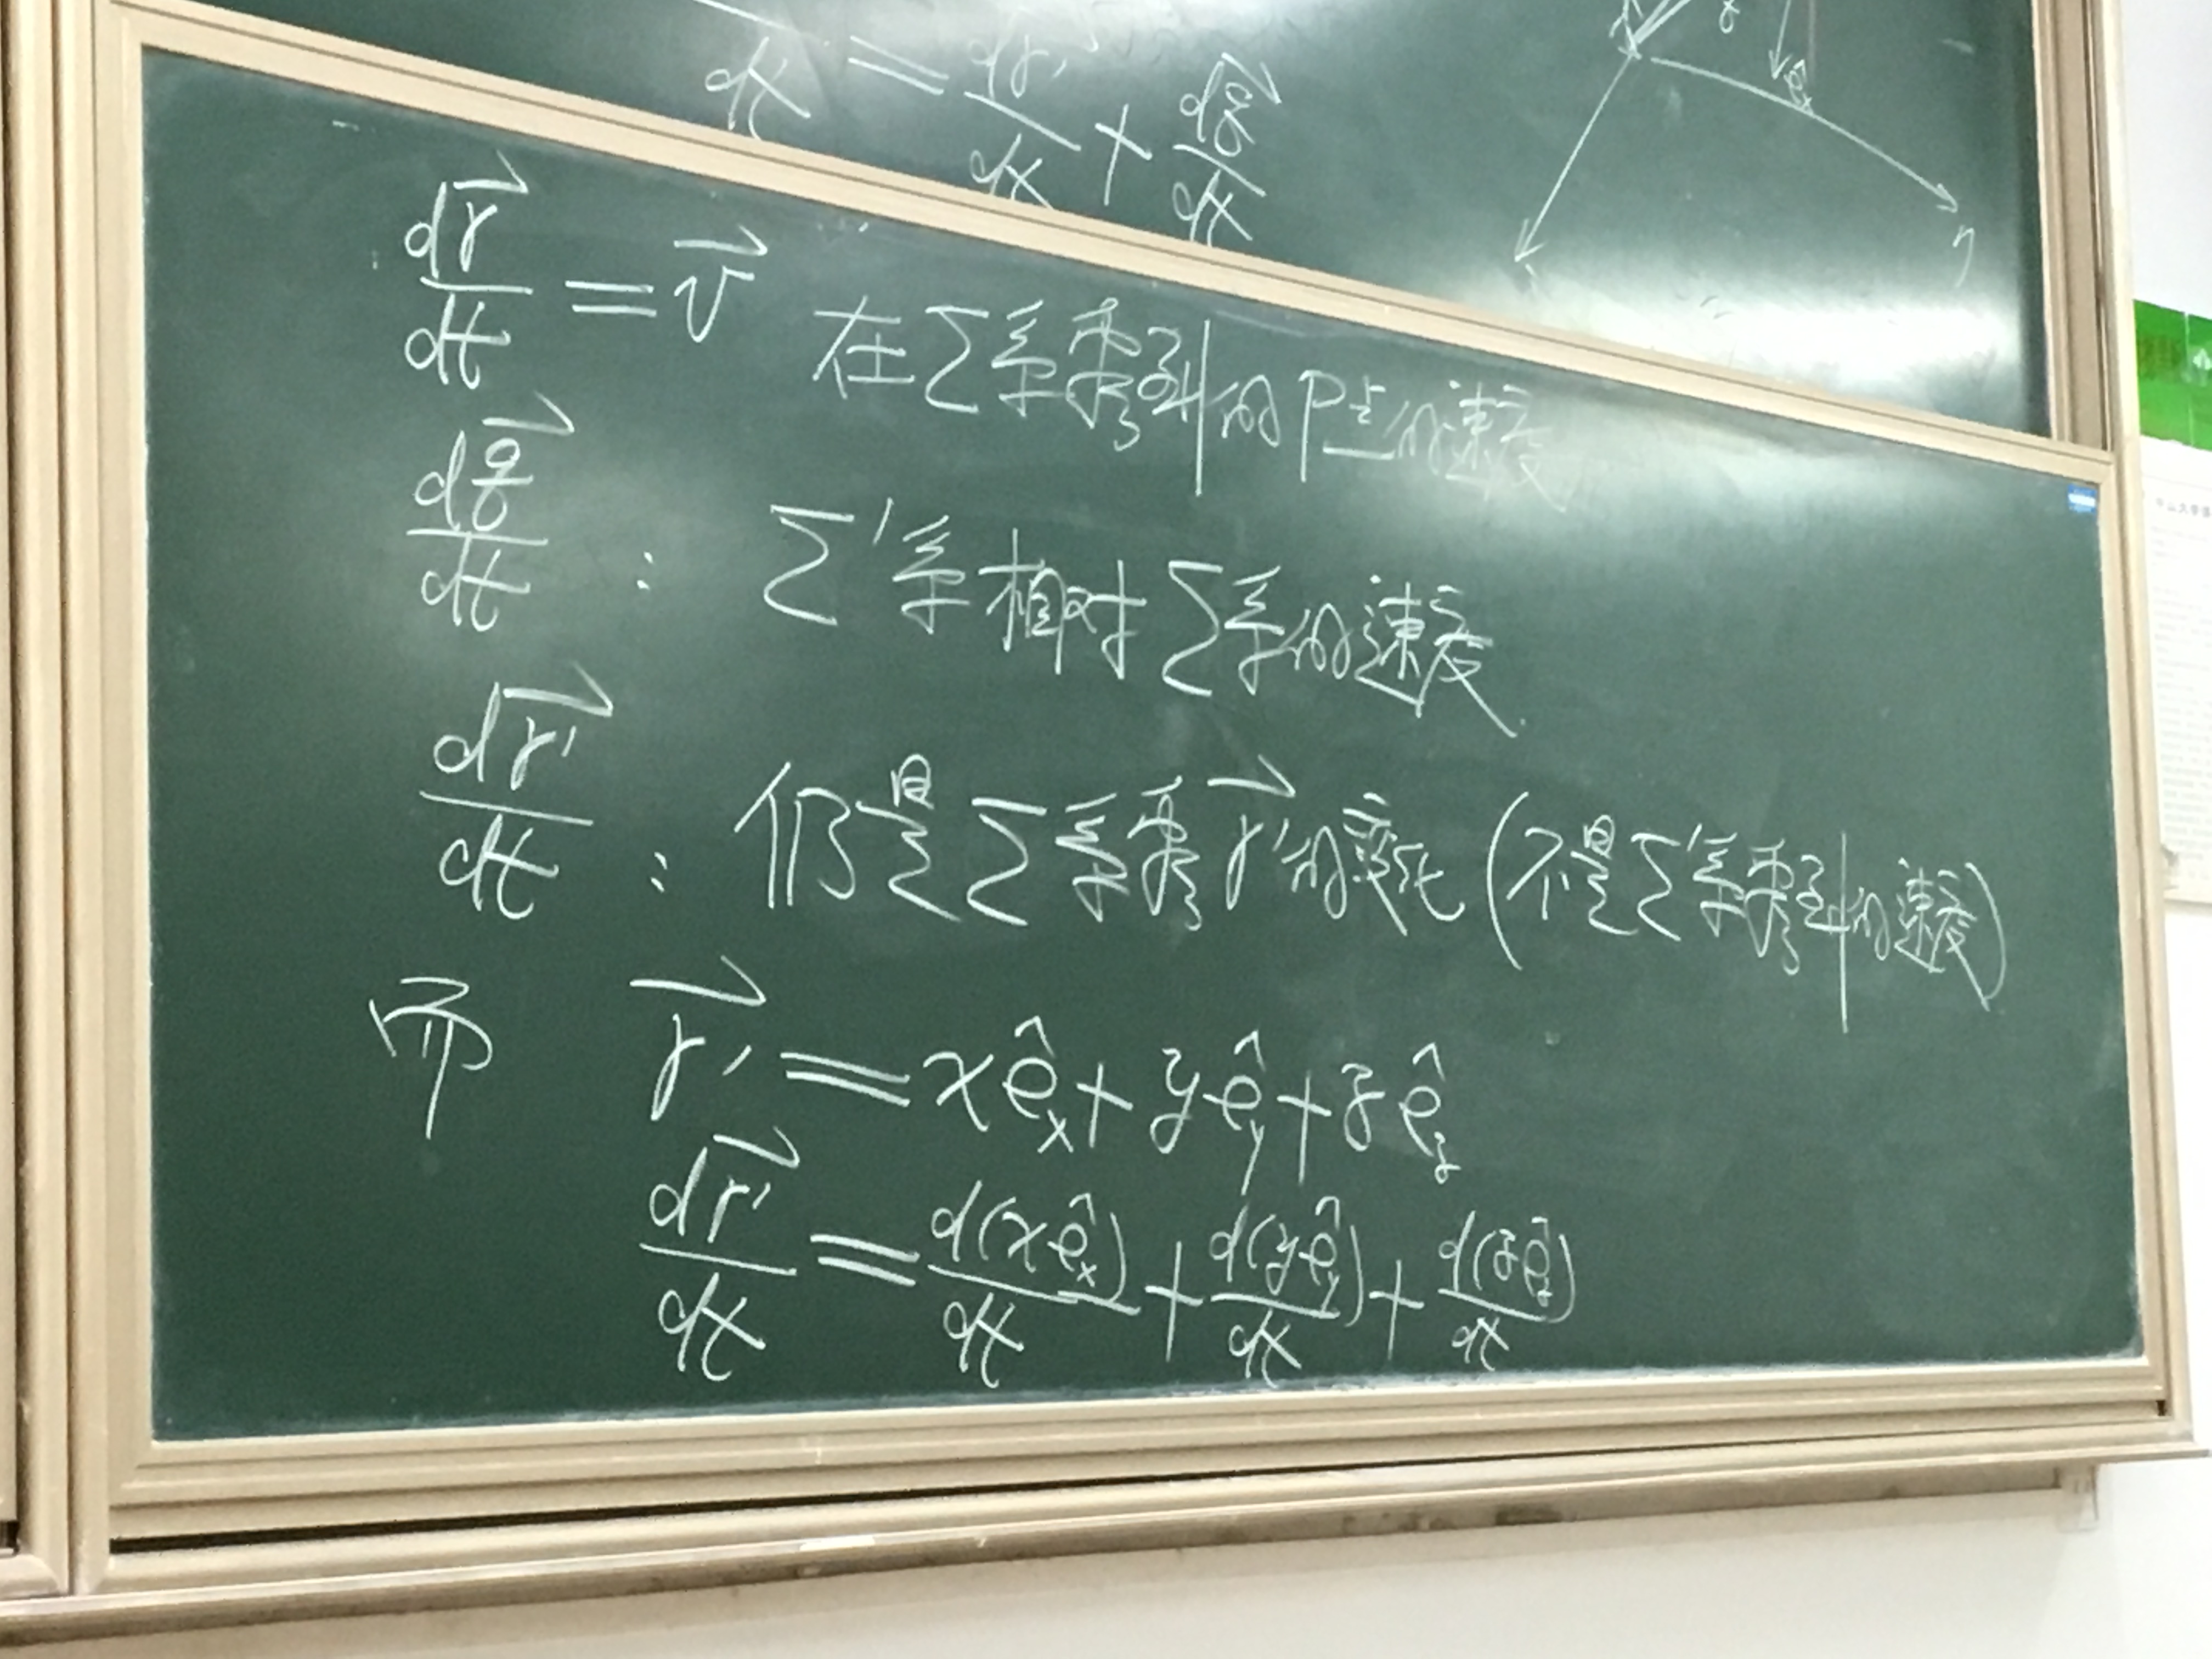 dt = dr⃗'/dt + dR⃗/dt
η
dr⃗/dt = v⃗ 在Σ系看到的P点的速度
: Σ'系相对Σ系的速度.
dr⃗'/dt : 仍是Σ系看r⃗'的变化(不是Σ'系看到的速度)
而 r⃗' = xê_x + yê_y + zê_z
dr⃗'/dt = d(xê_x)/dt + d(yê_y)/dt + d(zê_z)/dt